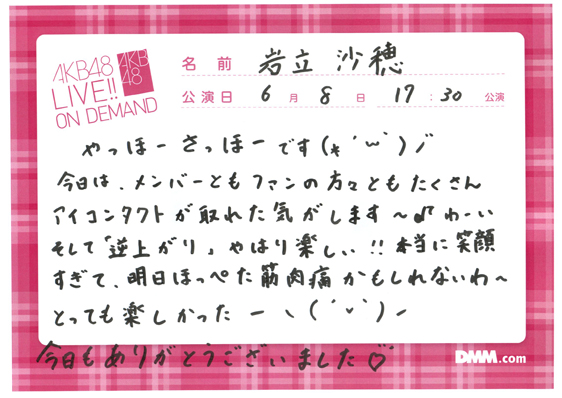 AKB48
LIVE!!
ON DEMAND
AKB
48
名前 岩立 沙穂
公演日 6月8日 17:30 公演
やっほー さっほー です(*´ω`)ノ
今日は、メンバーともファンの方々ともたくさん
アイコンタクトが取れた気がします〜♪ わーい
そして「逆上がり」やはり楽しい!!本当に笑顔
すぎて、明日ほっぺた筋肉痛かもしれないわ〜
とっても楽しかったーヽ(´ᵕ`)ノ
今日もありがとうございました♡
DMM.com